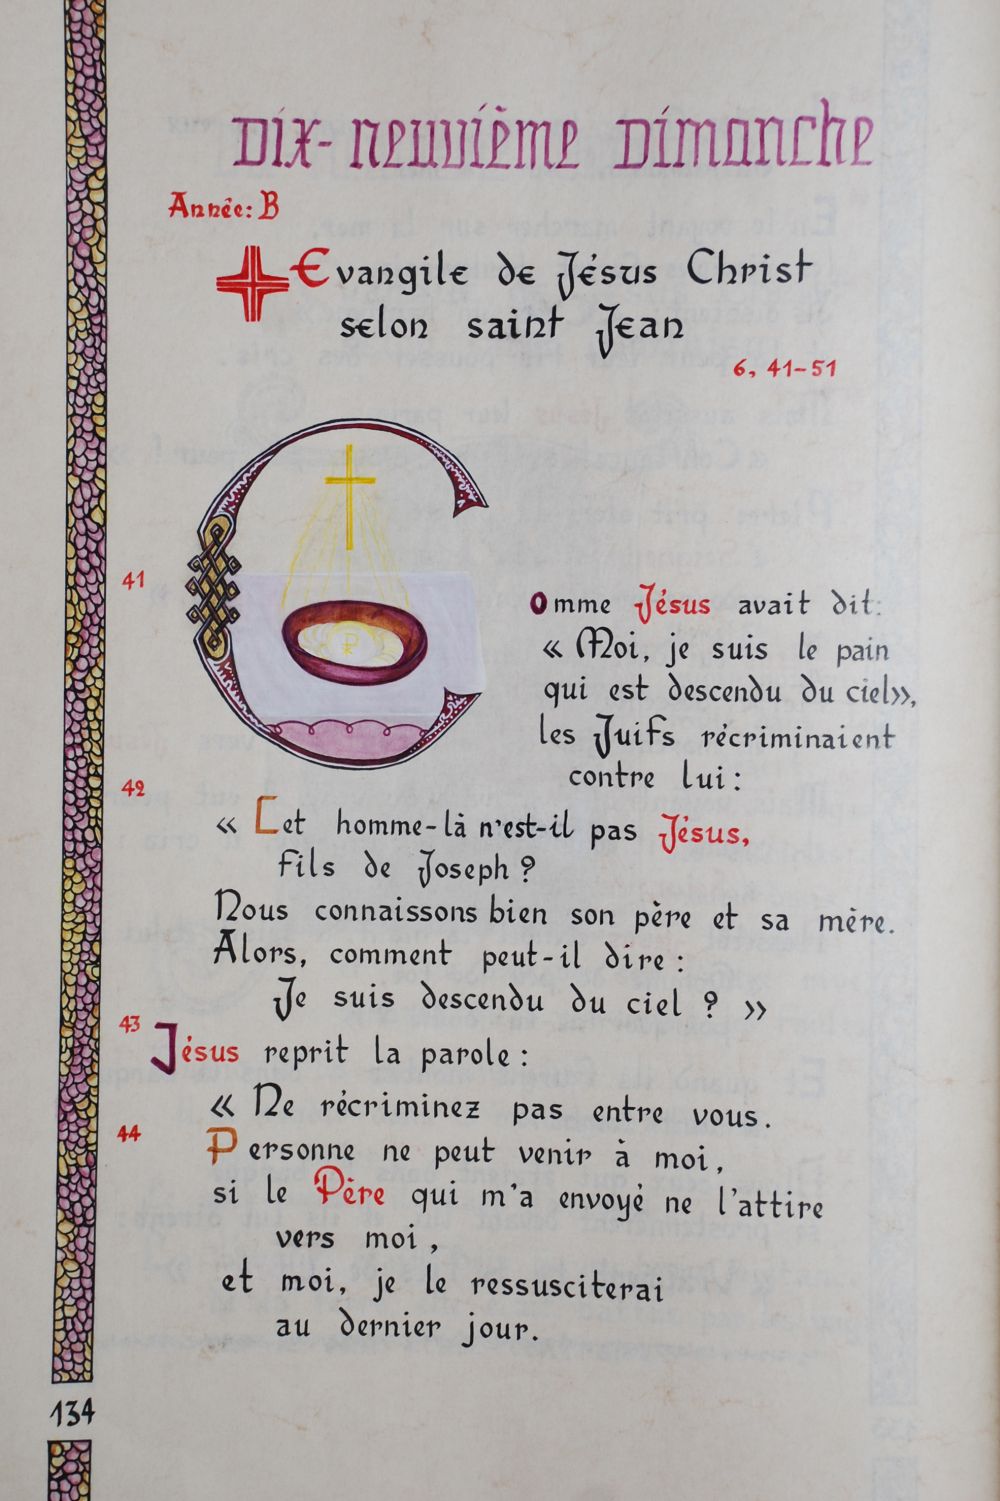 Dix-neuvième Dimanche
Année: B
Evangile de Jésus Christ
selon saint Jean
6, 41-51
41
Comme Jésus avait dit:
« Moi, je suis le pain
qui est descendu du ciel»,
les Juifs récriminaient
contre lui:
42
« Cet homme-là n'est-il pas Jésus,
fils de Joseph ?
Nous connaissons bien son père et sa mère.
Alors, comment peut-il dire :
Je suis descendu du ciel ? »
43
Jésus reprit la parole :
« Ne récriminez pas entre vous.
44
Personne ne peut venir à moi,
si le Père qui m'a envoyé ne l'attire
vers moi,
et moi, je le ressusciterai
au dernier jour.
134